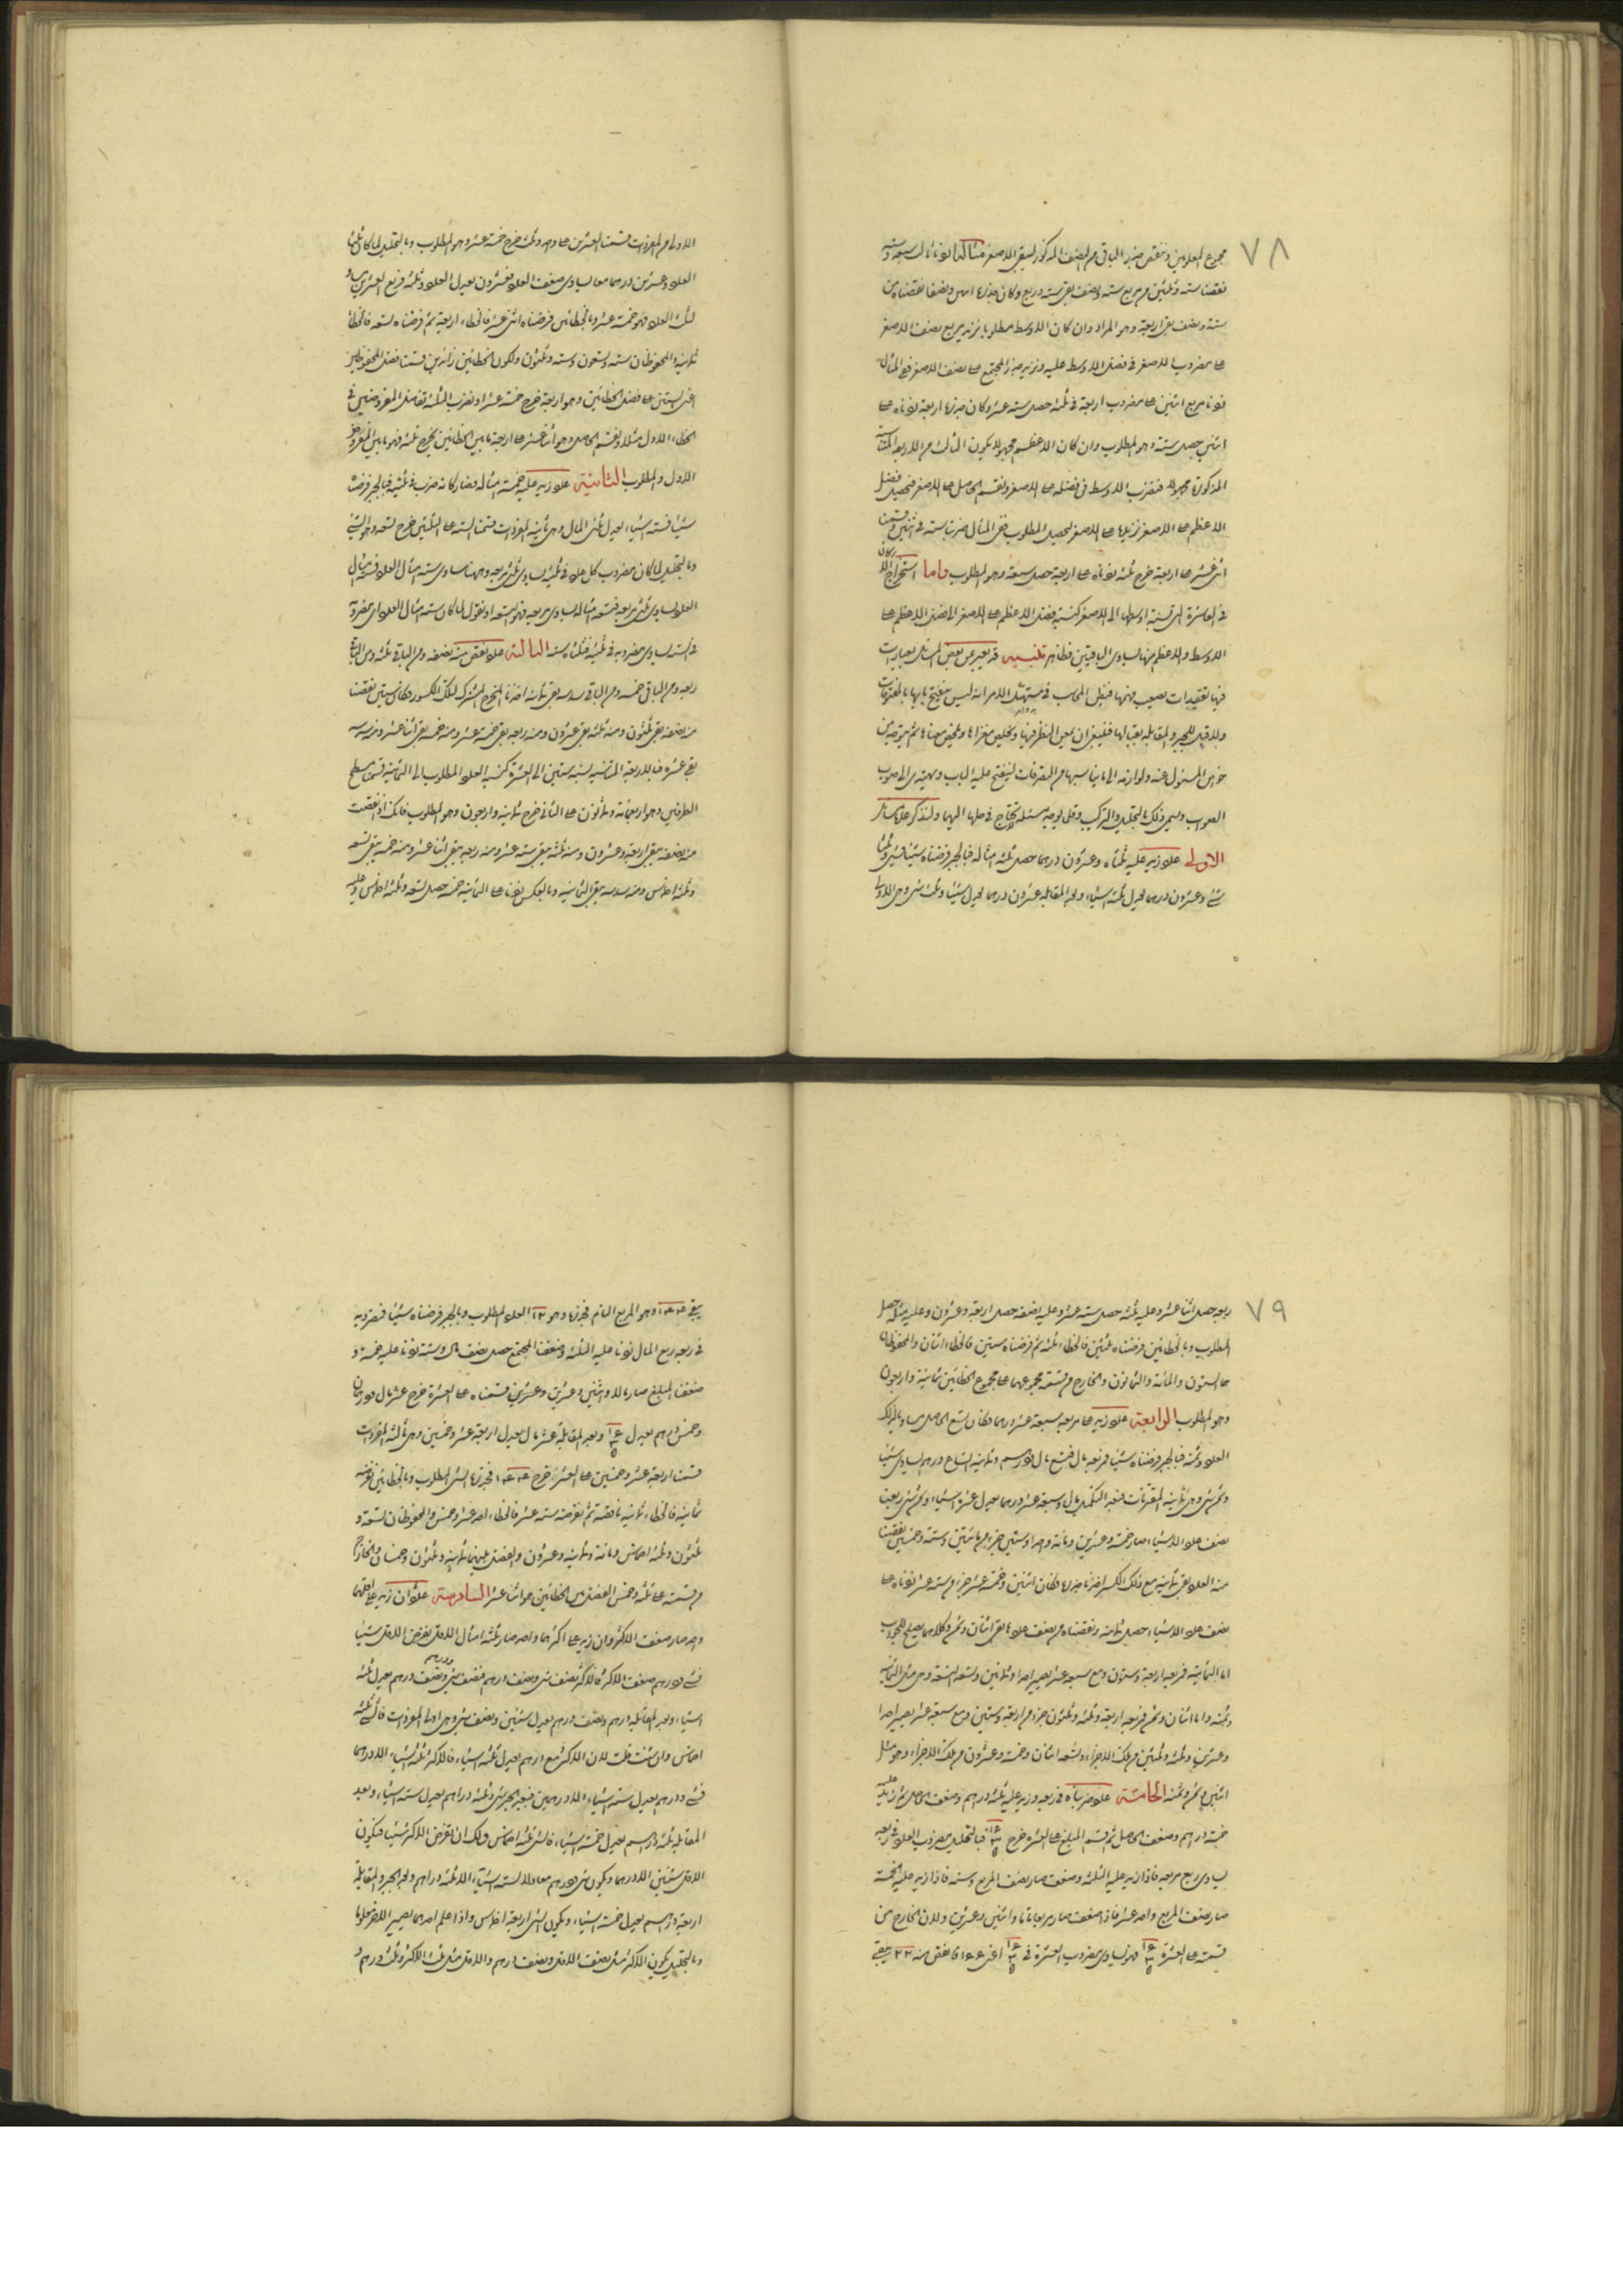 ٧٨
مجموع المعلومين وننقص جذر الباقى من النصف المذكور ليبقى الاصغر مثاله
نقصنا ستة وثلثين من مربع ستة ونصف بقى ستة وربع وكان جذرها اثنين ونصفا نقصناه من
ستة ونصف بقى اربعة وهو المراد وان كان الاوسط مطلوبا نزيد مربع نصف الاصغر
على مضروب الاصغر فى فضل الاوسط عليه ونزيد جذر المجتمع على نصف الاصغر ففى المثال
زدنا مربع اثنين على مضروب اربعة فى ثلثة حصل ستة عشر وكان جذرها اربعة زدناه على
اثنين حصل ستة وهو المطلوب وان كان الاعظم مجهولا يكون الثالث من الاربعة المتناسبة
المذكورة مجهولا فنضرب الاوسط فى فضله على الاصغر ونقسم الحاصل على الاصغر فيحصل فضل
الاعظم على الاصغر نزيدها على الاصغر ليحصل المطلوب ففى المثال ضربنا ستة فى اثنين وقسمنا
اثنى عشر على اربعة خرج ثلثة زدناه على اربعة حصل سبعة وهو المطلوب واما استخراج
فى العاشرة التى نسبة اوسطها الى الاصغر كنسبة فضل الاعظم على الاصغر الى فضل الاعظم على
الاوسط والاعظم منها يساوى الباقيين فظاهر تنبيه قد يعبر عن بعض المسائل بعبارات
فيها تعقيدات يصعب فهمها فيظن المحاسب فى مبتدأ الامر انه ليس ينفتح بابها بالمفتوحات
ولا قبل للجبر والمقابلة بقبالها فلينبغى ان يمعن النظر فيها وتخليص مغزاها وتلخيص معناها ثم يتوجه من
خواص المسئول عنه ولوازمه الى ما يناسبها من التصرفات لينفتح عليه الباب ويهتدى الى صوب
الصواب ويسمى ذلك بالتحليل والتركيب وقلما يوجد مسئلة لا تحتاج فى حلها اليهما ولنذكر على ذلك مسائل
الاولى عدد زيد عليه ثلثاه وعشرون درهما حصل ثلثة امثاله فبالجبر فرضناه شيئا فشئ وثلثا
شئ وعشرون درهما تعدل ثلثة اشياء وبعد المقابلة عشرون درهما تعدل شيئا وثلث شئ وهى الاولى
الاولى من المفردات قسمنا العشرين على واحد وثلث خرج خمسة عشر وهو المطلوب وبالتحليل لما كان ثلثا
العدد وعشرين درهما معا يساوى ضعف العدد فعشرون يعدل العدد وثلثه فربع العشرين يساوى
ثلث العدد فهو خمسة عشر وبالخطائين فرضناه اثنى عشر فالخطاء اربعة ثم فرضناه تسعة فالخطاء
ثمانية والمحفوظان ستة وتسعون وستة وثلثون ولكون الخطائين زائدين قسمنا فضل المحفوظين
اعنى الستين على فضل الخطائين وهو اربعة خرج خمسة عشر او نضرب الثلثة تفاضل المفروضين فى
الخطاء الاول مثلا ونقسم الحاصل وهو اثنا عشر على اربعة ما بين الخطائين يخرج ثلثة فهو ما بين المفروض
الاول والمطلوب الثانية عدد زيد عليه خمسة امثاله فصار كانه ضرب فى ثلثيه فبالجبر فرضناه
شيئا فستة اشياء تعدل ثلثى المال وهى ثانية المفردات قسمنا الستة على الثلثين خرج تسعة وهو الشئ
وبالتحليل لما كان مضروب كل عدد فى ثلثيه يساوى ثلثى مربعه وههنا يساوى ستة امثال العدد فستة امثال
العدد يساوى ثلثى مربعه فتسعة امثاله يساوى مربعه فهو التسعة او نقول لما كان ستة امثال العدد اى مضروبه
فى ستة يساوى مضروبه فى ثلثيه فثلثاه ستة الثالثة عدد نقص منه نصفه ومن الباقى ثلثه ومن الباقى
ربعه ومن الباقى خمسه ومن الباقى سدسه بقى ثمانية اخذنا المخرج المشترك لتلك الكسور فكان ستين نقصنا
منه نصفه بقى ثلثون ومنه ثلثه بقى عشرون ومنه ربعه بقى خمسة عشر ومنه خمسه بقى اثنا عشر ومنه سدسه
بقى عشرة فبالاربعة المتناسبة نسبة ستين الى العشرة كنسبة العدد المطلوب الى الثمانية قسمنا مسطح
الطرفين وهو اربعمائة وثمانون على الثانى خرج ثمانية واربعون وهو المطلوب فانك اذا نقصت
منه نصفه يبقى اربعة وعشرون ومنه ثلثه يبقى ستة عشر ومنه ربعه يبقى اثنا عشر ومنه خمسه يبقى تسعة
وثلثة اخماس ومنه سدسه يبقى الثمانية وبالعكس زدنا على الثمانية خمسه حصل تسعة وثلثة اخماس وعليه
٧٩
ربعه حصل اثنا عشر وعليه ثلثه حصل ستة عشر وعليه نصفه حصل اربعة وعشرون وعليه مثله حصل
المطلوب وبالخطائين فرضناه ثلثين فالخطاء ثلثة ثم فرضناه ستين فالخطاء اثنان والمحفوظان
هما الستون والمائة والثمانون والخارج من قسمة مجموعهما على مجموع الخطائين ثمانية واربعون
وهو المطلوب الرابعة عدد زيد على مربعه سبعة عشر درهما فكان تسع الحاصل مساويا لذلك
العدد وثمنه فبالجبر فرضناه شيئا فمربعه مال فتسع مال ودرهم وثمانية اتساع درهم يساوى شيئا
وثمن شئ وهى ثانية المقترنات فبعد التكميل مال وسبعة عشر درهما يعدل عشرة اشياء وثمن شئ ربعنا
نصف عدد الاشياء صار خمسة وعشرين ومائة واحدا وستين جزءا من مائتين وستة وخمسين نقصنا
منه العدد بقى ثمانية مع ذلك الكسر اخذنا جذرها فكان اثنين وخمسة عشر جزءا من ستة عشر زدناه على
نصف عدد الاشياء حصل ثمانية ونقصناه من نصف عددها بقى اثنان وثمن وكلاهما يصلح للجواب
اما الثمانية فمربعه اربعة وستون ومع سبعة عشر يصير احدا وثمانين وتسعه التسعة وهى مثل الثمانية
وثمنه واما اثنان وثمن فمربعه اربعة وثلثة وثلثون جزءا من اربعة وستين ومع سبعة عشر يصير احدا
وعشرين وثلثة وثلثين من تلك الاجزاء وتسعه اثنان وخمسة وعشرون من تلك الاجزاء وهو مثل
اثنين وثمن وثمنه الخامسة عدد ضربناه فى ربعه وزيد عليه ثلثة دراهم وضعف الحاصل ثم زيد عليه
خمسة دراهم وضعف الحاصل ثم قسم المبلغ على العشرة خرج فبالتحليل مضروب العدد فى ربعه
يساوى ربع مربعه فاذا زيد عليه الثلثة وضعف صار نصف المربع وستة فاذا زيد عليه الخمسة
صار نصف المربع واحد عشر فاذا ضعف صار مربعا تاما واثنين وعشرين ولان الخارج من
قسمته على العشرة فهو يساوى مضروب العشرة فى اعنى فانقص منه ٢٢ يبقى
يبقى وهو المربع التام فجذرها وهو ١٢ العدد المطلوب وبالجبر فرضناه شيئا فمضروبه
فى ربعه ربع المال زدنا عليه الثلثة وضعفنا المجتمع حصل نصف مال وستة زدنا عليه خمسة و
ضعفنا المبلغ صار مالا واثنين وعشرين قسمناه على العشرة خرج عشر مال ودرهمان
وخمس درهم يعدل وبعد المقابلة عشر مال يعدل اربعة عشر وخمسين وهى ثالثة المفردات
قسمنا اربعة عشر وخمسين على العشر خرج فجذرها الشئ المطلوب وبالخطائين نفرضه
ثمانية فالخطاء ثمانية ناقصة ثم نفرضه ستة عشر فالخطاء احد عشر وخمس والمحفوظان تسعة و
ثلثون وثلثة اخماس ومائة وثمانية وعشرون والفضل بينهما ثمانية وثلثون وخمسان والخارج
من قسمته على ثلثة وخمس الفضل بين الخطائين هو اثنا عشر السادسة عددان زيد على اقلهما
واحد صار ضعف الاكثر وان زيد على اكثرهما واحد صار ثلثة امثال الاقل نفرض الاقل شيئا
فشئ ودرهم ضعف الاكثر فالاكثر نصف شئ ونصف درهم فنصف شئ ودرهم ونصف درهم يعدل ثلثة
اشياء وبعد المقابلة درهم ونصف درهم يعدل شيئين ونصف شئ وهى اولى المفردات فالشئ ثلثة
اخماس وان شئت قلت لان الاكثر مع درهم يعدل ثلثة اشياء فالاكثر ثلثة اشياء الا درهما
فشئ ودرهم يعدل ستة اشياء الا درهمين فبعد الجبر شئ وثلثة دراهم يعدل ستة اشياء وبعد
المقابلة ثلثة دراهم يعدل خمسة اشياء فالشئ ثلثة اخماس ولك ان تفرض الاكثر شيئا فيكون
الاقل شيئين الا درهما ويكون شئ ودرهم معادلا لستة اشياء الا ثلثة دراهم وبعد الجبر والمقابلة
اربعة دراهم يعدل خمسة اشياء ويكون الشئ اربعة اخماس واذا علم احدهما يصير الاخر معلوما
وبالتحليل يكون الاكثر مثل نصف الاقل ونصف درهم والاقل مثل ثلث الاكثر وثلث درهم